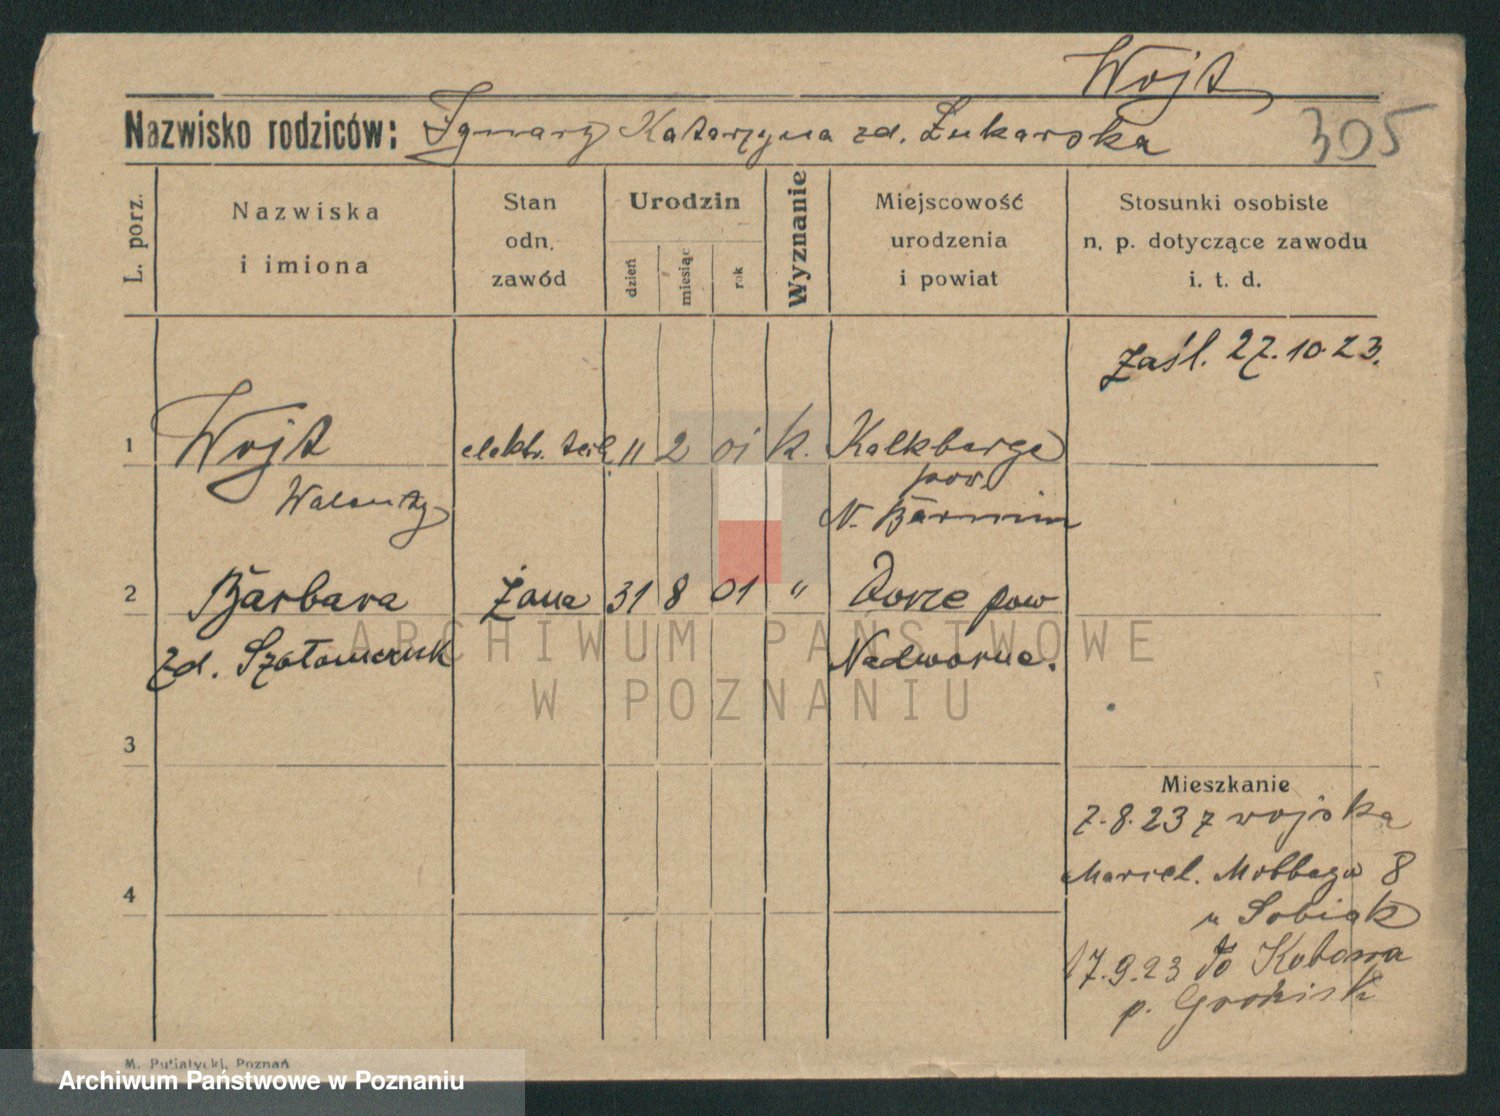 Wojt
Nazwisko rodziców: Ignacy Katarzyna zd. Łukarska
305
L. porz.
Nazwiska
i imiona
Stan
odn.
zawód
Urodzin
dzień
miesiąc
rok
Wyznanie
Miejscowość
urodzenia
i powiat
Stosunki osobiste
n. p. dotyczące zawodu
i. t. d.
Zaśl. 27.10.23.
1 Wojt elektr. 11 2 01 k. Kalkberge
pow.
Walenty N. Barnim
2 Barbara żona 31 8 01 " Dorze pow
zd. Nadworna.
3
Mieszkanie
7.8.23 z wojska
4
Marcel. 8
u Sobiak
17.9.23 do
p. Grodzisk
M. Putiatycki, Poznań
ARCHIWUM PAŃSTWOWE
W POZNANIU
Archiwum Państwowe w Poznaniu